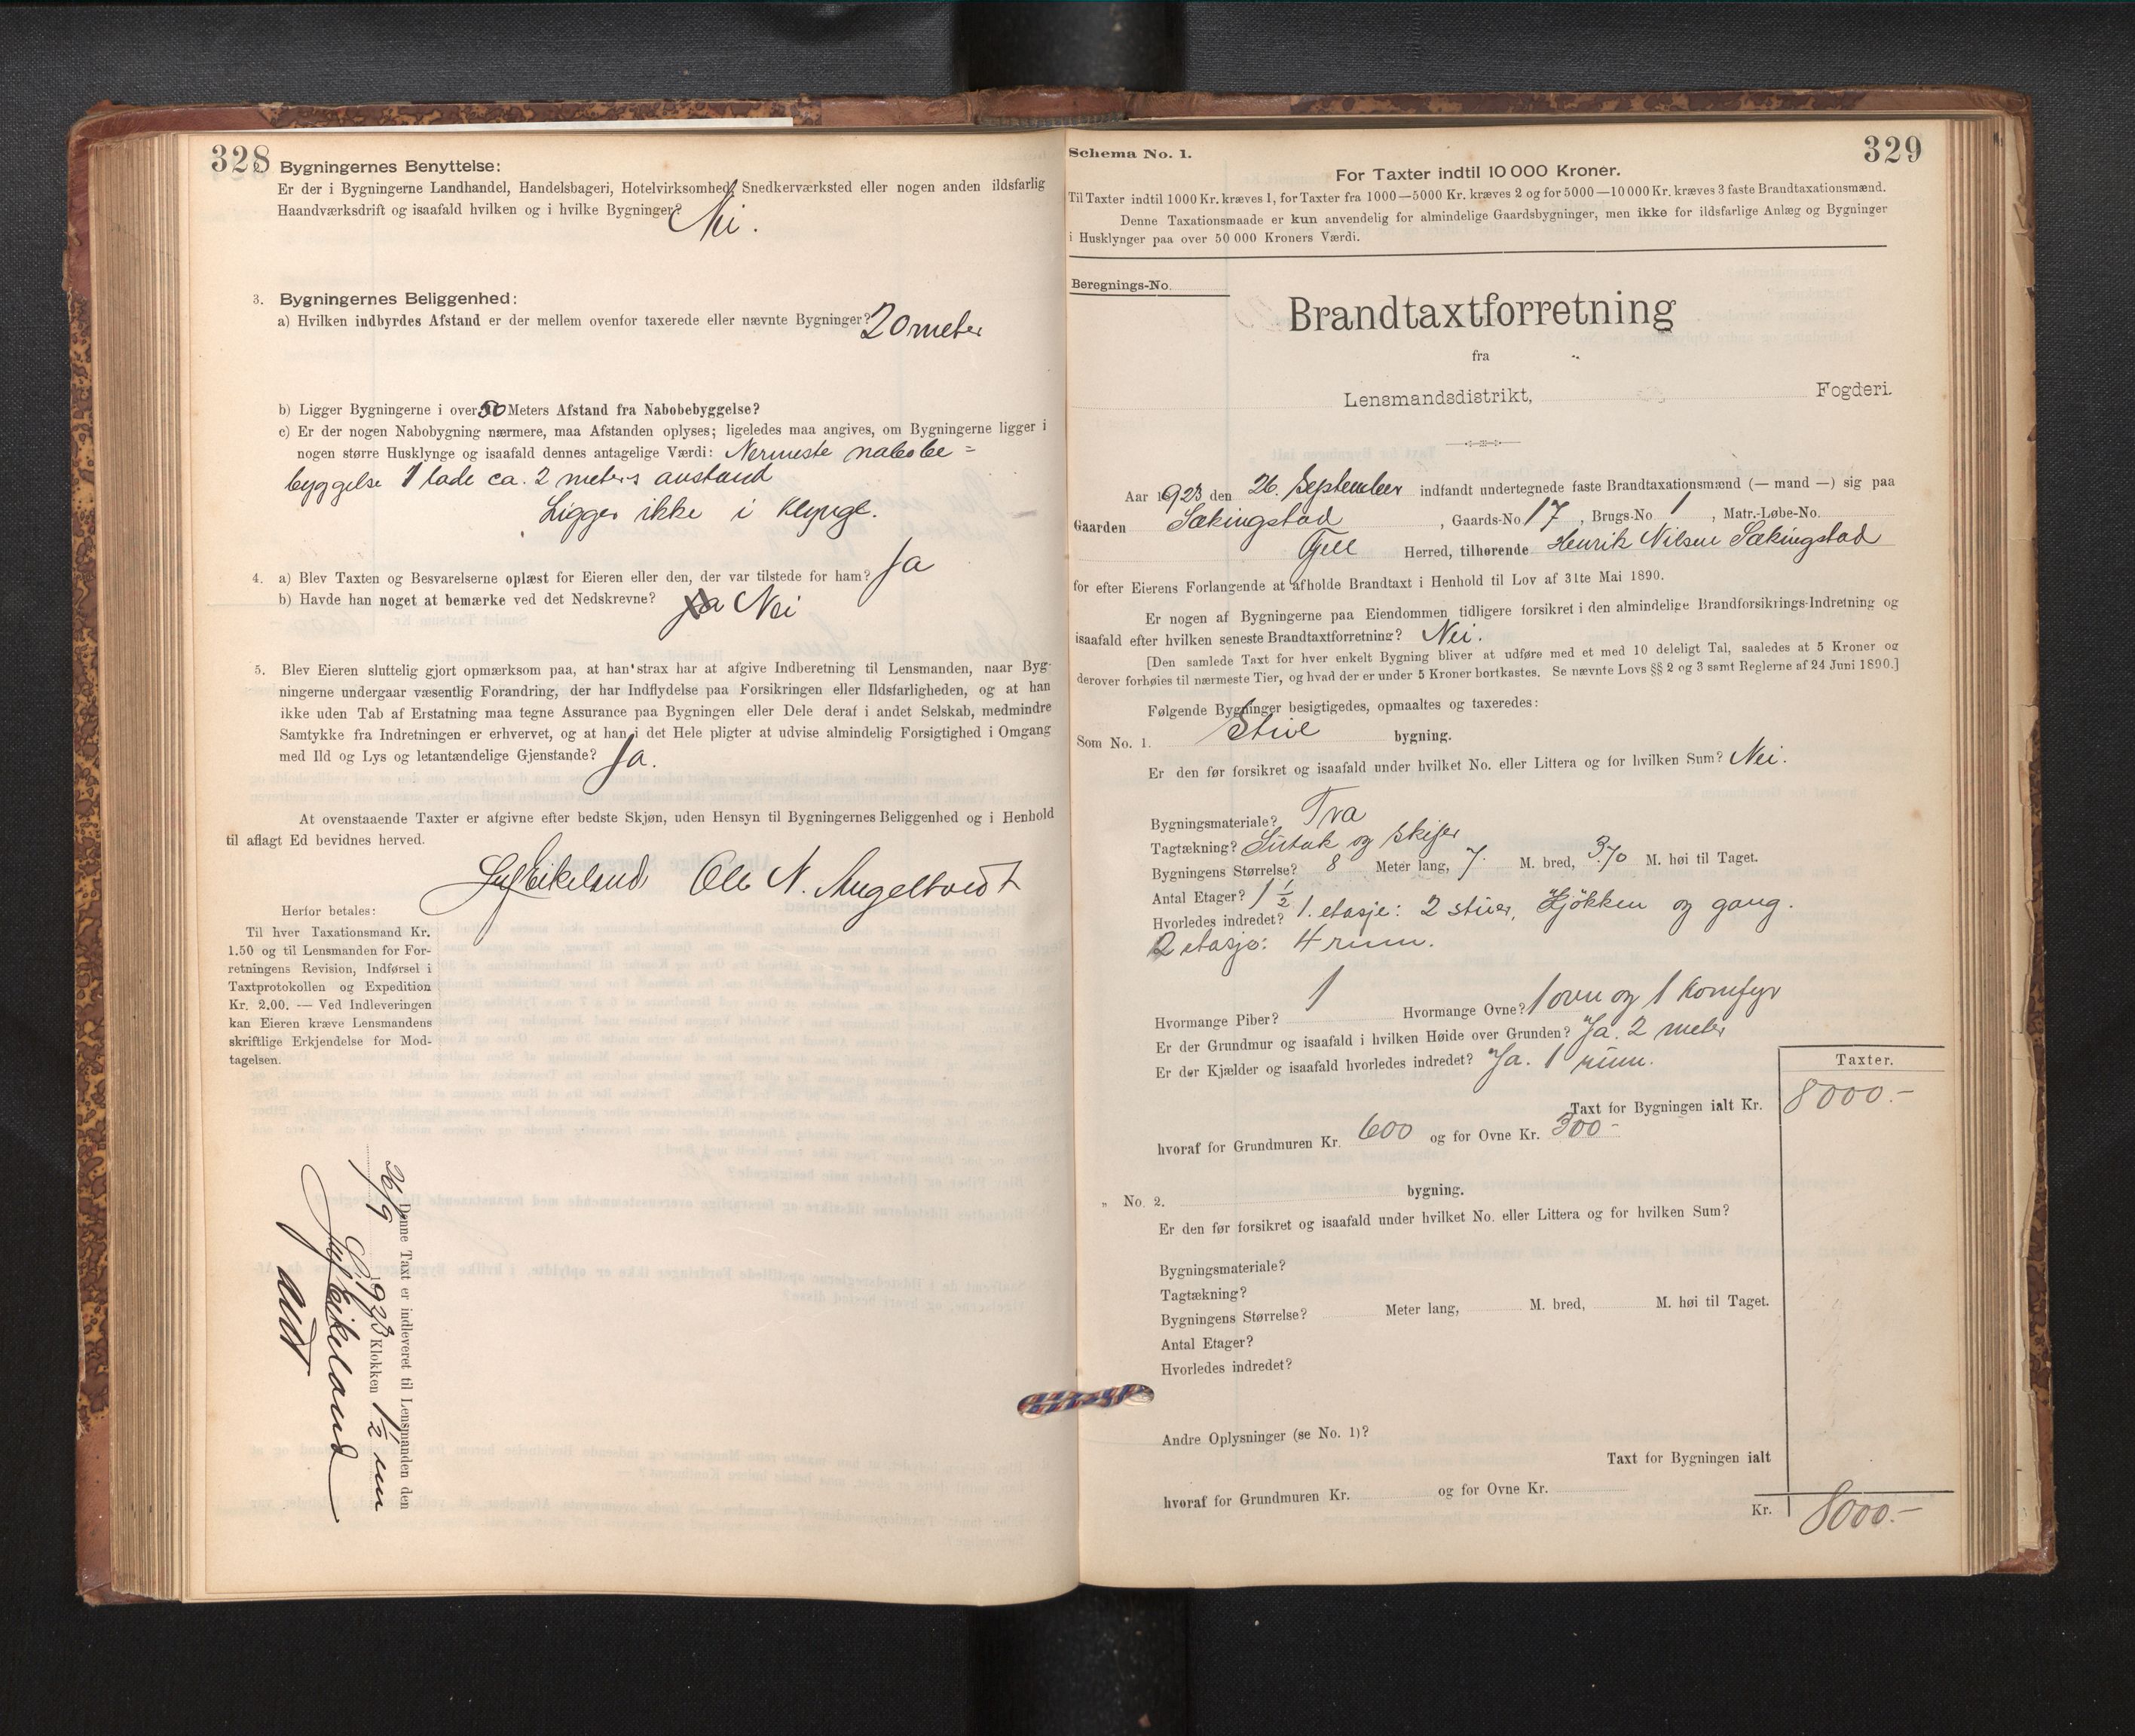 328
Bygningernes Benyttelse:
Er der i Bygningerne Landhandel, Handelsbageri, Hotelvirksomhed, Snedkerværksted eller nogen anden ildsfarlig
Haandværksdrift og isaafald hvilken og i hvilke Bygninger? Nei.
3. Bygningernes Beliggenhed:
a) Hvilken indbyrdes Afstand er der mellem ovenfor taxerede eller nævnte Bygninger? 20 meter
b) Ligger Bygningerne i over 50 Meters Afstand fra Nabobebyggelse?
c) Er der nogen Nabobygning nærmere, maa Afstanden oplyses; ligeledes maa angives, om Bygningerne ligger i
nogen større Husklynge og isaafald dennes antagelige Værdi: Nermeste nabobe=
byggelse 1 lade ca. 2 meters avstand
Ligger ikke i Klynge.
4. a) Blev Taxten og Besvarelserne oplæst for Eieren eller den, der var tilstede for ham? Ja
b) Havde han noget at bemærke ved det Nedskrevne? Ja Nei
5. Blev Eieren sluttelig gjort opmærksom paa, at han strax har at afgive Indberetning til Lensmanden, naar Byg-
ningerne undergaar væsentlig Forandring, der har Indflydelse paa Forsikringen eller Ildsfarligheden, og at han
ikke uden Tab af Erstatning maa tegne Assurance paa Bygningen eller Dele deraf i andet Selskab, medmindre
Samtykke fra Indretningen er erhvervet, og at han i det Hele pligter at udvise almindelig Forsigtighed i Omgang
med Ild og Lys og letantændelige Gjenstande? Ja.
At ovenstaaende Taxter er afgivne efter bedste Skjøn, uden Hensyn til Bygningernes Beliggenhed og i Henhold
til aflagt Ed bevidnes herved.
Eikeland Ole N. Angeltveidt
Herfor betales:
Til hver Taxationsmand Kr.
1.50 og til Lensmanden for For-
retningens Revision, Indførsel i
Taxtprotokollen og Expedition
Kr. 2.00. — Ved Indleveringen
kan Eieren kræve Lensmandens
skriftlige Erkjendelse for Mod-
tagelsen.
Denne Taxt er indleveret til Lensmanden den
26/9 1923 Klokken 1 1/2 em
Eikeland
329
Schema No. 1.
For Taxter indtil 10 000 Kroner.
Til Taxter indtil 1000 Kr. kræves 1, for Taxter fra 1000—5000 Kr. kræves 2 og for 5000—10000 Kr. kræves 3 faste Brandtaxationsmænd.
Denne Taxationsmaade er kun anvendelig for almindelige Gaardsbygninger, men ikke for ildsfarlige Anlæg og Bygninger
i Husklynger paa over 50 000 Kroners Værdi.
Beregnings-No.
Brandtaxtforretning
fra
Lensmandsdistrikt, Fogderi.
Aar 1923 den 26. September indfandt undertegnede faste Brandtaxationsmænd (— mand —) sig paa
Gaarden Sækingstad, Gaards-No 17, Brugs-No 1, Matr.-Løbe-No.
Fjell Herred, tilhørende Henrik Nilsen Sækingstad
for efter Eierens Forlangende at afholde Brandtaxt i Henhold til Lov af 31te Mai 1890.
Er nogen af Bygningerne paa Eiendommen tidligere forsikret i den almindelige Brandforsikrings-Indretning og
isaafald efter hvilken seneste Brandtaxtforretning? Nei.
[Den samlede Taxt for hver enkelt Bygning bliver at udføre med et med 10 deleligt Tal, saaledes at 5 Kroner og
derover forhøies til nærmeste Tier, og hvad der er under 5 Kroner bortkastes. Se nævnte Lovs §§ 2 og 3 samt Reglerne af 24 Juni 1890.]
Følgende Bygninger besigtigedes, opmaaltes og taxeredes:
Som No. 1. Stue bygning.
Er den før forsikret og isaafald under hvilket No. eller Littera og for hvilken Sum? Nei.
Bygningsmateriale? Træ
Tagtækning? Sutak og Skifer
Bygningens Størrelse? 8 Meter lang, 7. M. bred, 3.70 M. høi til Taget.
Antal Etager? 1 1/2
Hvorledes indredet? 1. etasje: 2 stuer, Kjøkken og gang.
2 etasje: 4 rum.
Hvormange Piber? 1 Hvormange Ovne? 1 ovn og 1 Komfyr
Er der Grundmur og isaafald i hvilken Høide over Grunden? Ja. 2 meter
Er der Kjælder og isaafald hvorledes indredet? Ja. 1 rum.
Taxter.
Taxt for Bygningen ialt Kr. 8000.-
hvoraf for Grundmuren Kr. 600 og for Ovne Kr. 300-
„ No. 2. bygning.
Er den før forsikret og isaafald under hvilket No. eller Littera og for hvilken Sum?
Bygningsmateriale?
Tagtækning?
Bygningens Størrelse? Meter lang, M. bred, M. høi til Taget.
Antal Etager?
Hvorledes indredet?
Andre Oplysninger (se No. 1)?
Taxt for Bygningen ialt
hvoraf for Grundmuren Kr. og for Ovne Kr.
Kr. 8000.-